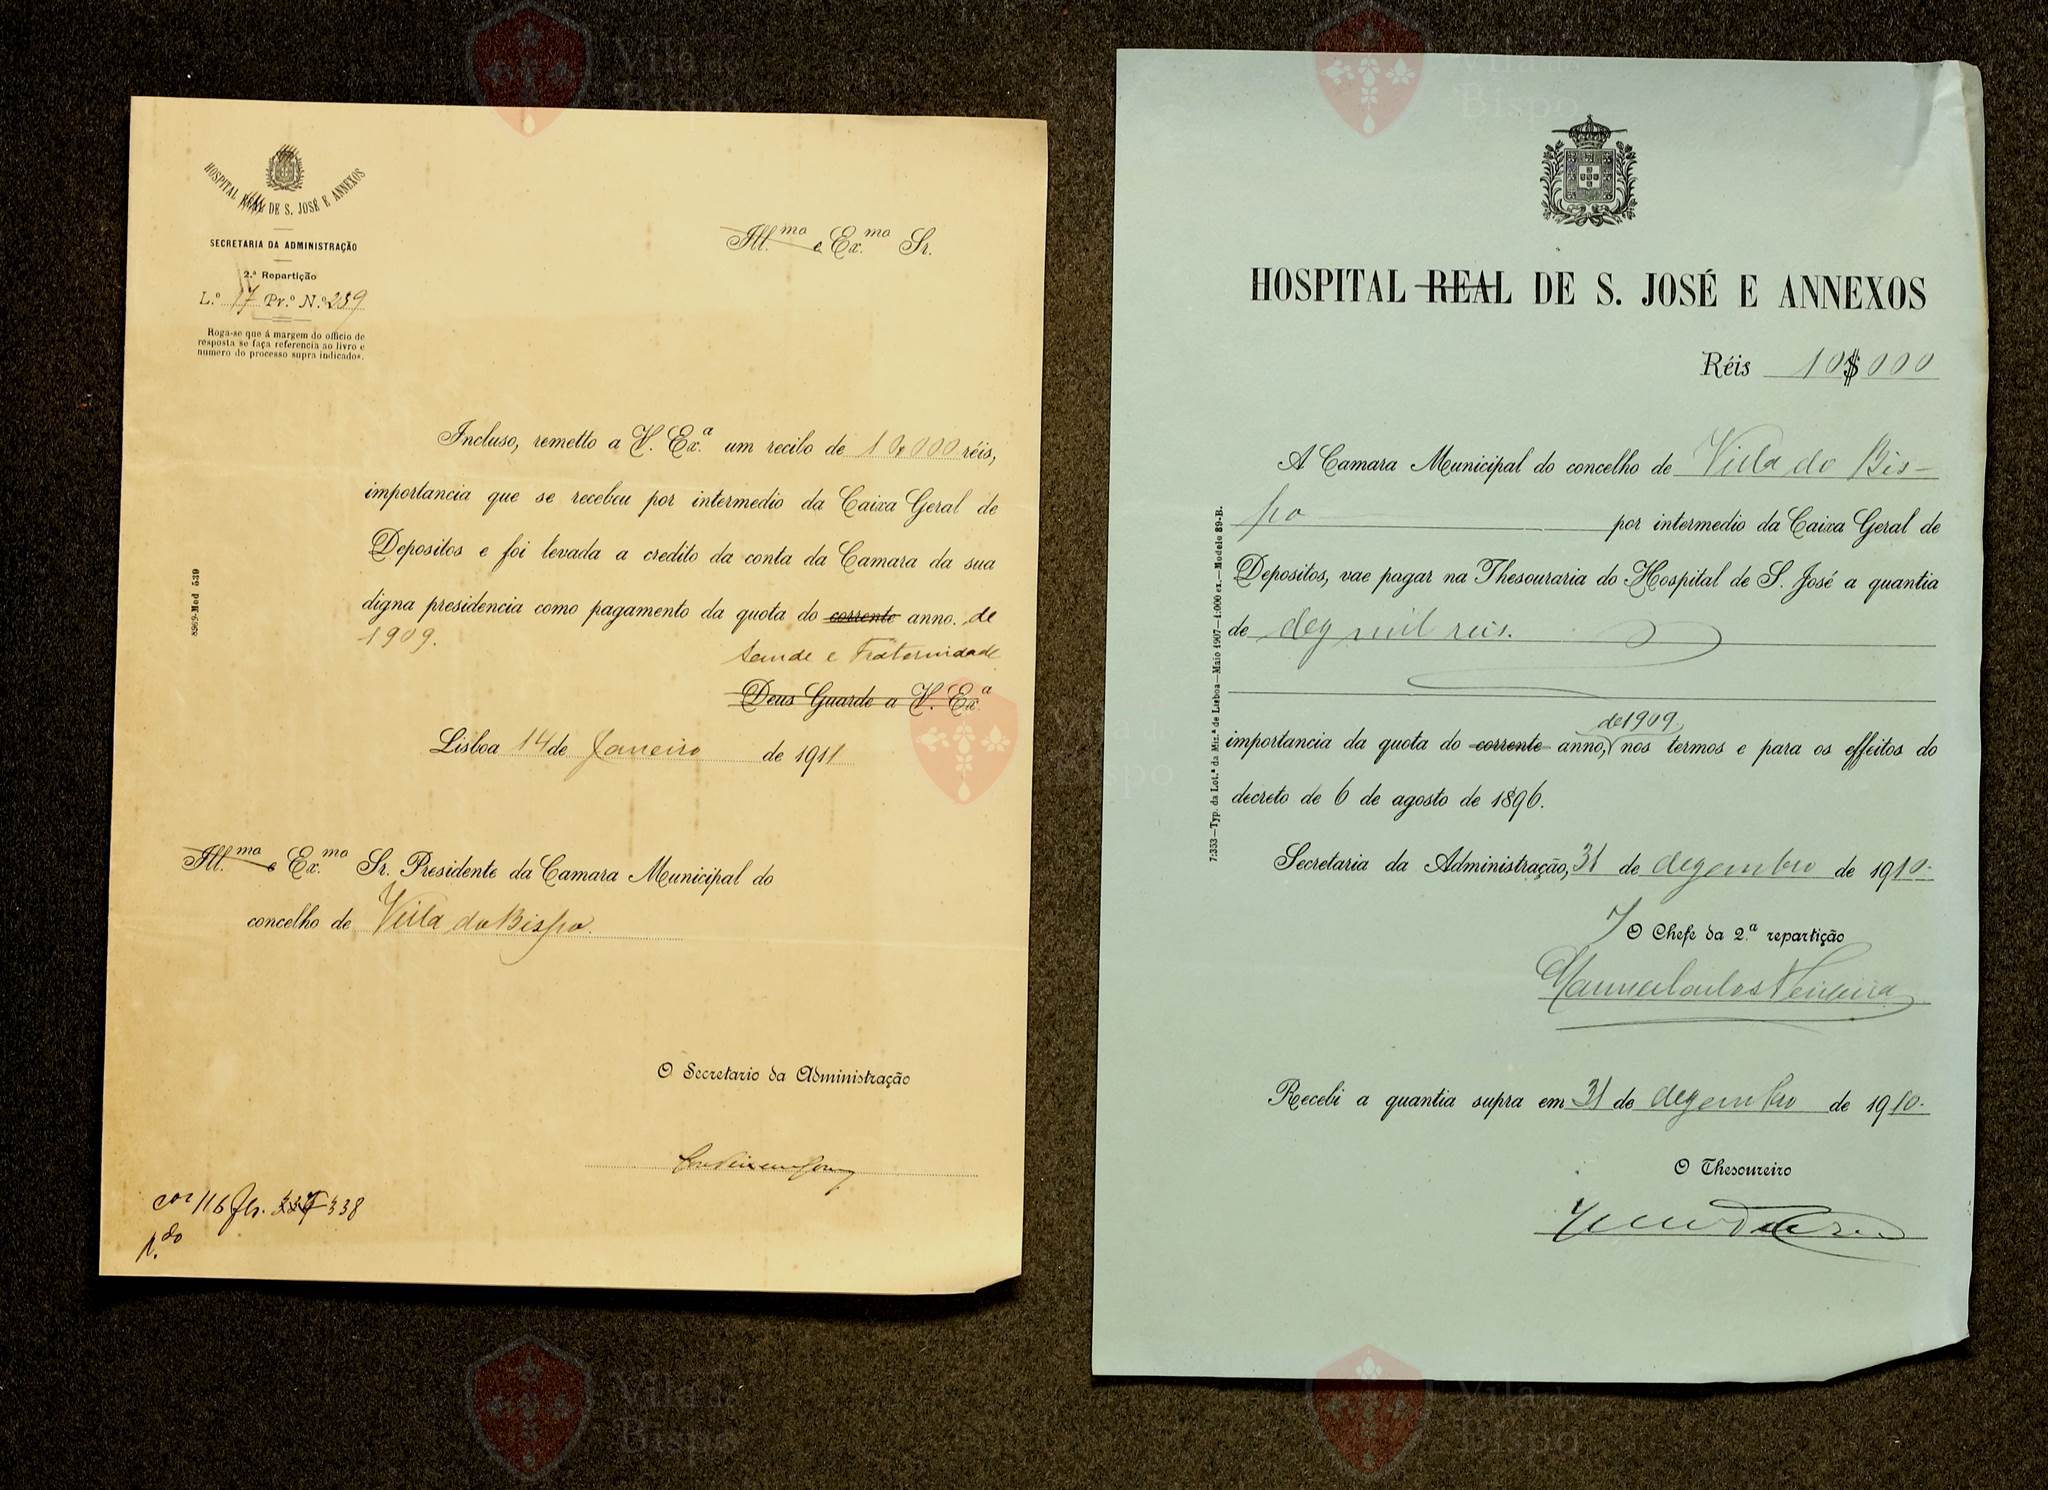 HOSPITAL REAL DE S. JOSÉ E ANNEXOS
SECRETARIA DA ADMINISTRAÇÃO
2.ª Repartição
L.º 17 Pr.º N.º 239
Roga-se que á margem do officio de
resposta se faça referencia ao livro e
numero do processo supra indicados.
Ill.mo e Ex.mo Sr.
Incluso, remetto a V. Ex.ª um recibo de 10.000 réis,
importancia que se recebeu por intermedio da Caixa Geral de
Depositos e foi levada a credito da conta da Camara da sua
digna presidencia como pagamento da quota do corrente anno. de
1909.
Saude e Fraternidade
Deus Guarde a V. Ex.ª
Lisboa 14 de Janeiro de 1911
Ill.mo e Ex.mo Sr. Presidente da Camara Municipal do
concelho de Villa do Bispo.
O Secretario da Administração
8969-Mod 539
116 fls. 338
HOSPITAL REAL DE S. JOSÉ E ANNEXOS
Réis 10$000
A Camara Municipal do concelho de Villa do Bis-
po por intermedio da Caixa Geral de
Depositos, vae pagar na Thesouraria do Hospital de S. José a quantia
de dez mil reis.
de 1909
importancia da quota do corrente anno, nos termos e para os effeitos do
decreto de 6 de agosto de 1896.
Secretaria da Administração, 31 de dezembro de 1910.
O Chefe da 2.ª repartição
Recebi a quantia supra em 31 de dezembro de 1910.
O Thesoureiro
7:333—Typ. da Lot.ª da Mis.ª de Lisboa—Maio 1907—1:000 ex.—Modelo 89-B.
Vila do
Bispo
Vila do
Bispo
Bispo
Vila do
Bispo
Vila do
Bispo